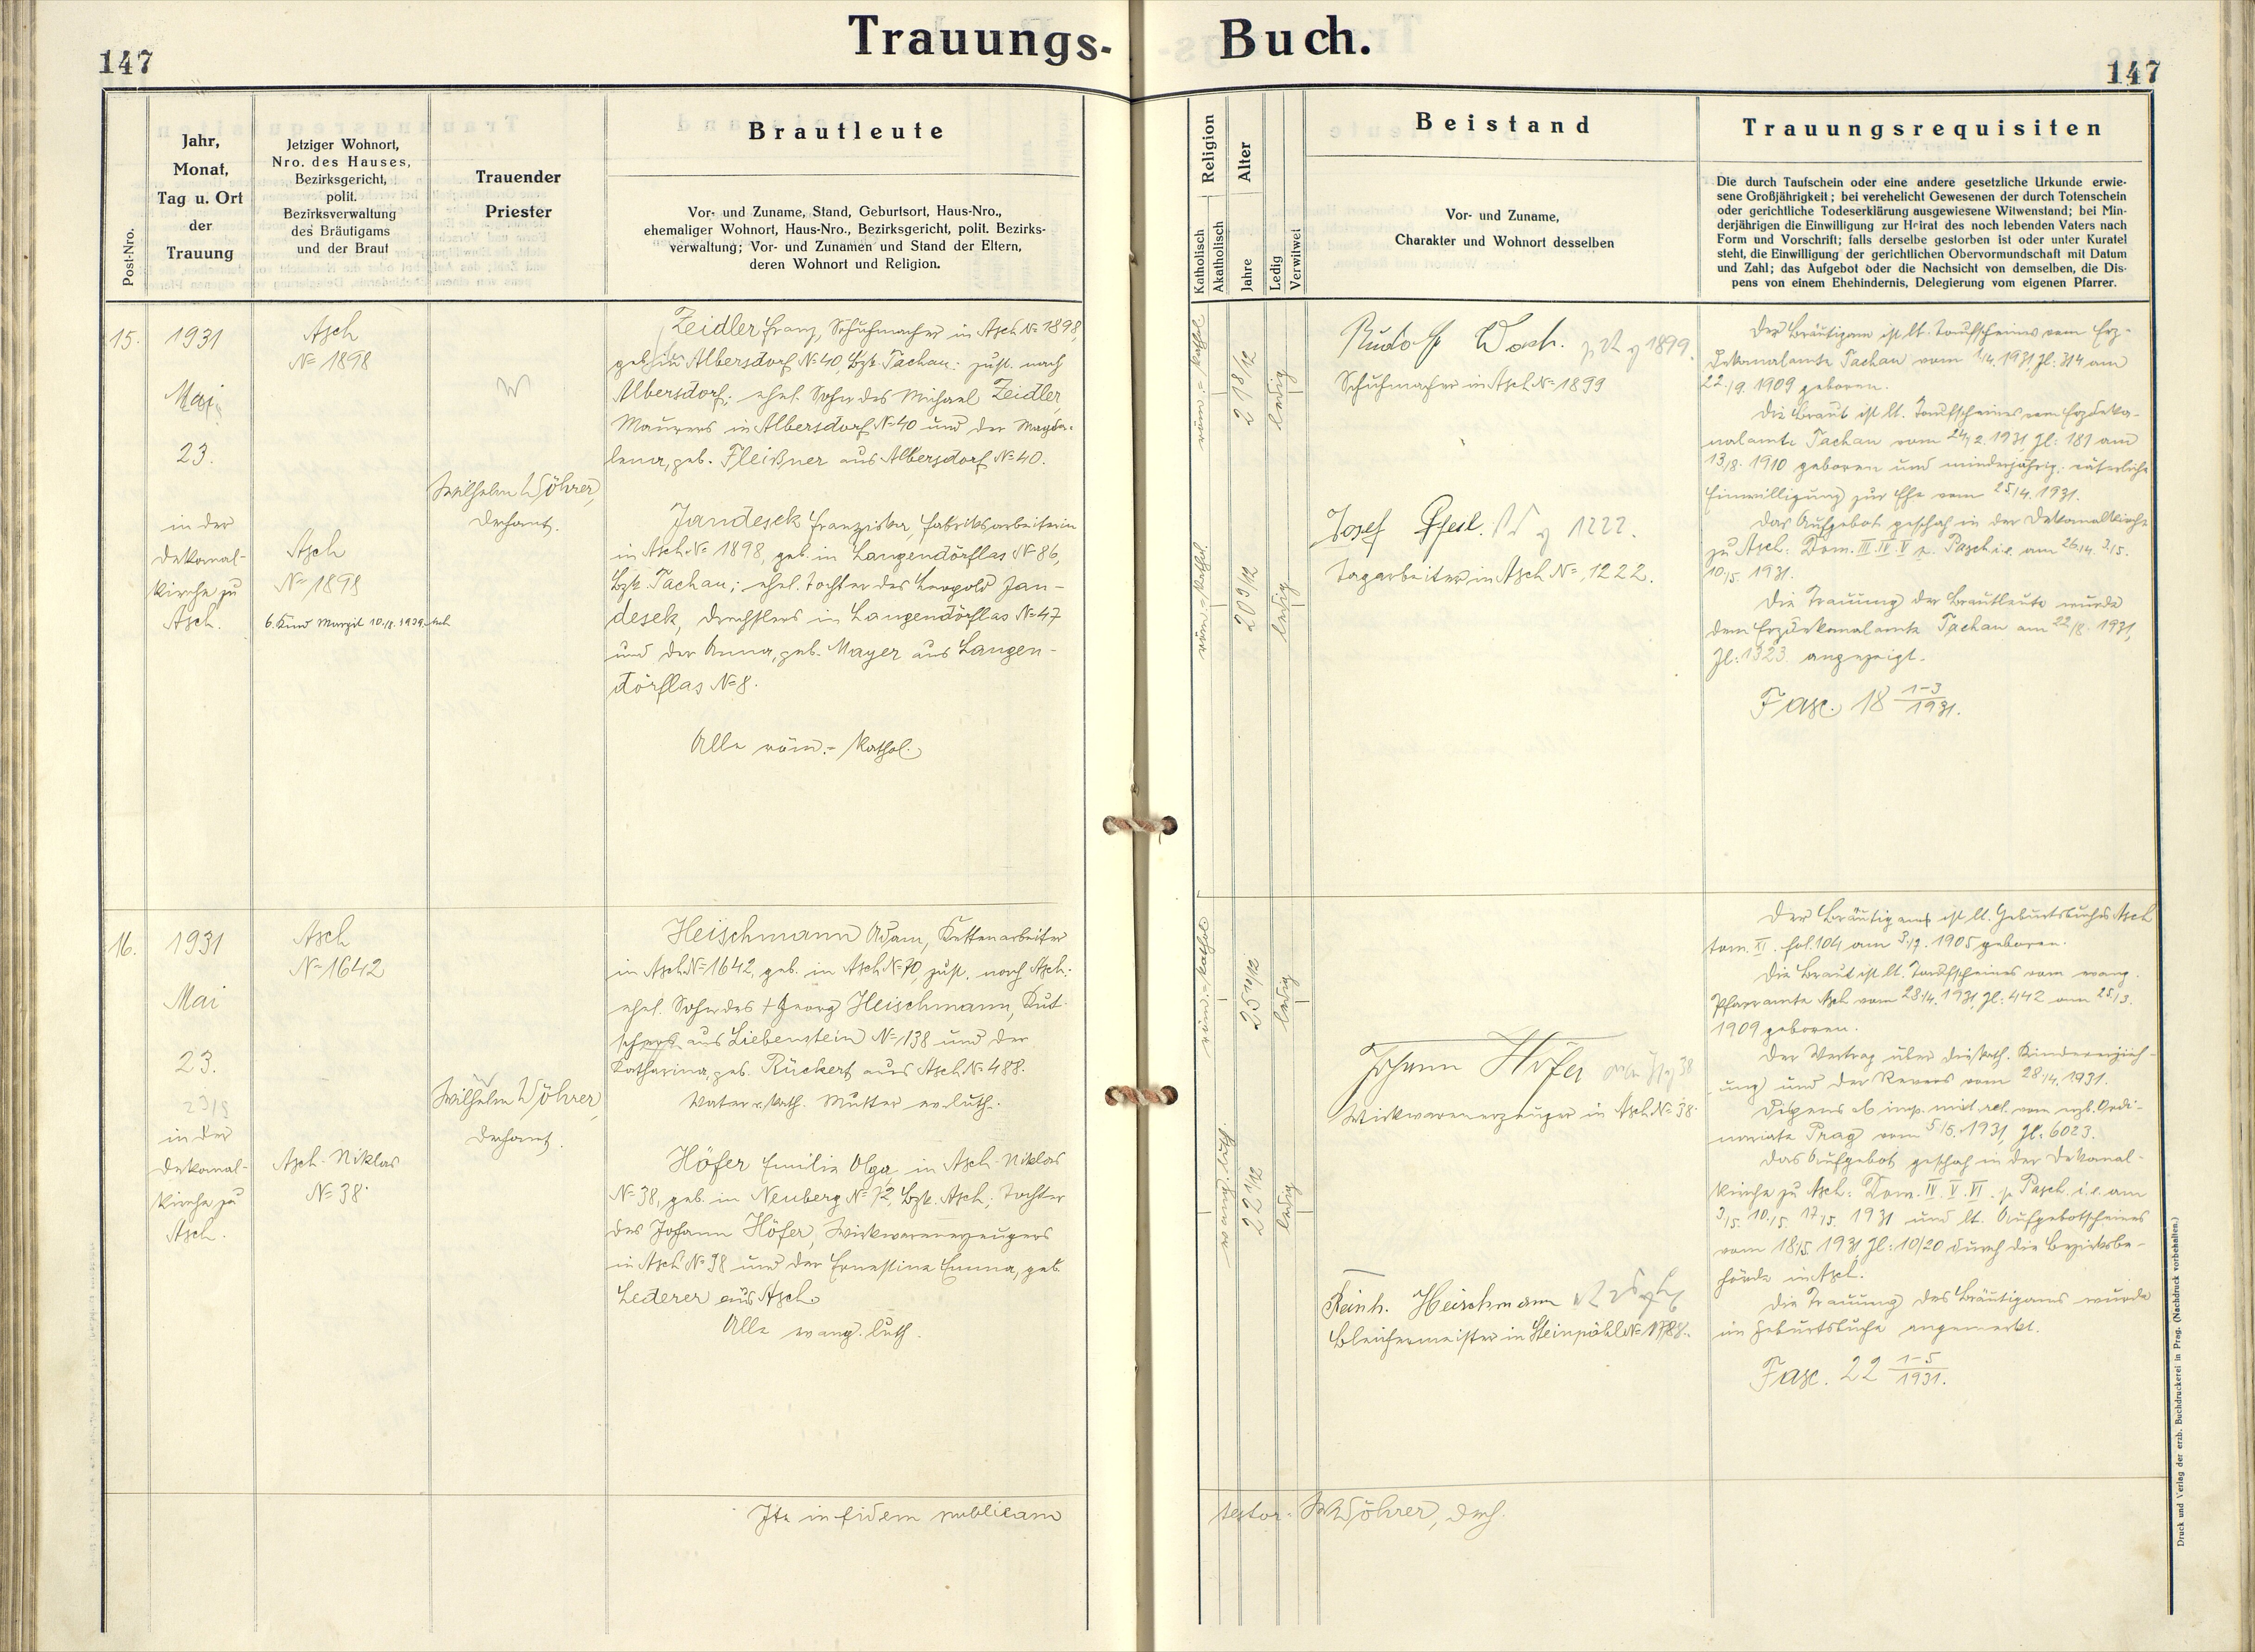 Trauungs- Buch.
147
147
Post-Nro.
Jahr,
Monat,
Tag u. Ort
der
Trauung
Jetziger Wohnort,
Nro. des Hauses,
Bezirksgericht,
polit.
Bezirksverwaltung
des Bräutigams
und der Braut
Trauender
Priester
Brautleute
Vor- und Zuname, Stand, Geburtsort, Haus-Nro.,
ehemaliger Wohnort, Haus-Nro., Bezirksgericht, polit. Bezirks-
verwaltung; Vor- und Zunamen und Stand der Eltern,
deren Wohnort und Religion.
Religion
Katholisch
Akatholisch
Alter
Jahre
Ledig
Verwitwet
Beistand
Vor- und Zuname,
Charakter und Wohnort desselben
Trauungsrequisiten
Die durch Taufschein oder eine andere gesetzliche Urkunde erwie-
sene Großjährigkeit; bei verehelicht Gewesenen der durch Totenschein
oder gerichtliche Todeserklärung ausgewiesene Witwenstand; bei Min-
derjährigen die Einwilligung zur Heirat des noch lebenden Vaters nach
Form und Vorschrift; falls derselbe gestorben ist oder unter Kuratel
steht, die Einwilligung der gerichtlichen Obervormundschaft mit Datum
und Zahl; das Aufgebot oder die Nachsicht von demselben, die Dis-
pens von einem Ehehindernis, Delegierung vom eigenen Pfarrer.
15.
1931
Mai
23.
in der
Dekanal-
kirche zu
Asch.
Asch
No 1898
Asch
No 1898
6. Kind Margit 10./8. 1939
Wilhelm Wöhrer,
Dechant.
Zeidler Franz, Schuhmacher in Asch No 1898,
geb. in Albersdorf No 40, Bzk. Tachau; zust. nach
Albersdorf; ehel. Sohn des Michael Zeidler,
Maurers in Albersdorf No 40 und der Magda-
lena, geb. Fleißner aus Albersdorf No 40.
Jandesek Franziska, Fabriksarbeiterin
in Asch No 1898, geb. in Langendörflas No 86,
Bzk. Tachau; ehel. Tochter des Leopold Jan-
desek, Drechslers in Langendörflas No 47
und der Anna, geb. Mayer aus Langen-
dörflas No 8.
Alle röm.- kathol.
röm.- kathol.
21 8/12
ledig
röm.- kathol.
20 9/12
ledig
Rudolf 1899.
Schuhmacher in Asch No 1899
Josef Pfeil. 1222.
Tagarbeiter in Asch No 1222.
Der Bräutigam ist lt. Taufscheines vom Erz-
dekanalamte Tachau vom 1/4. 1931, Zl: 314 am
22./9. 1909 geboren.
Die Braut ist lt. Taufscheines vom Erzdeka-
nalamte Tachau vom 24./2. 1931, Zl: 181 am
13/8. 1910 geboren und minderjährig; väterliche
Einwilligung zur Ehe vom 25/4. 1931.
Das Aufgebot geschah in der Dekanalkirche
zu Asch: Dom. III. IV. V p. Pasch. i. e. am 26./4. 3/5.
10./5. 1931.
Die Trauung der Brautleute wurde
dem Erzdekanalamte Tachau am 22/8. 1931,
Zl: 1323 angezeigt.
Fasc. 18 1-3/1931.
16.
1931
Mai
23.
in der
Dekanal-
kirche zu
Asch.
Asch
No 1642
Asch-Niklas
No 38.
Wilhelm Wöhrer,
Dechant.
Heischmann Adam, Kettenarbeiter
in Asch No 1642, geb. in Asch No 70, zust. nach Asch;
ehel. Sohn des † Georg Heischmann, Kut-
schers aus Liebenstein No 138 und der
Katharina, geb. Rückert aus Asch No 488.
Vater r. kath. Mutter ev. luth.
Höfer Emilie Olga, in Asch-Niklas
No 38, geb. in Neuberg No 72, Bzk. Asch; Tochter
des Johann Höfer, Wirkwarenerzeugers
in Asch No 38 und der Ernestine Emma, geb.
Lederer aus Asch.
Alle evang. luth.
röm.- kathol.
25 10/12
ledig
evang. luth.
22 2/12
ledig
Johann Höfer 38
Wirkwarenerzeuger in Asch No 38.
Reinh. Heischmann
Bleichermeister in Steinpöhl No 1788.
Der Bräutigam ist lt. Geburtsbuches Asch
tom. II. fol. 104 am 3/7. 1905 geboren.
Die Braut ist lt. Taufscheines vom evang.
Pfarramte Asch vom 28/4. 1931, Zl: 442 am 25/3.
1909 geboren.
Der Vertrag über die kath. Kindererzieh-
ung und der Revers vom 28./4. 1931.
Dispens ab imp. mixt. rel. vom erzb. Ordi-
nariate Prag vom 5/5. 1931, Zl: 6023.
Das Aufgebot geschah in der Dekanal-
kirche zu Asch: Dom. IV. V. VI. p. Pasch. i. e. am
3/5. 10./5. 17/5. 1931 und lt. Aufgebotscheines
vom 18/5. 1931, Zl: 10/20 durch die Bezirksbe-
hörde in Asch.
Die Trauung des Bräutigams wurde
im Geburtsbuche angemerkt.
Fasc. 22 1-5/1931.
Ita in fidem publicam testor: W. Wöhrer, Dech.
Druck und Verlag der erzb. Buchdruckerei in Prag. (Nachdruck vorbehalten.)